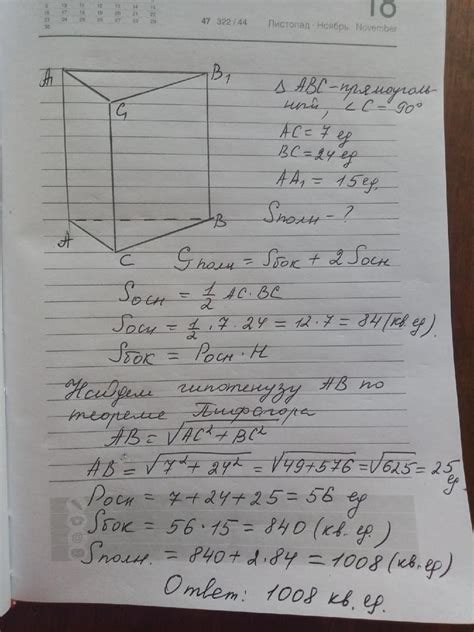 47 322/44 Листопад · Ноябрь November 18
A₁ B₁
C₁
A B
C
Δ ABC - прямоуголь-
ный, ∠C = 90°
AC = 7 ед
BC = 24 ед
AA₁ = 15 ед.
Sполн - ?
Sполн = Sбок + 2 Sосн
Sосн = 1/2 AC · BC
Sосн = 1/2 · 7 · 24 = 12 · 7 = 84 (кв. ед).
Sбок = Pосн · H
Найдем гипотенузу AB по
теореме Пифагора
AB = √AC² + BC²
AB = √7² + 24² = √49 + 576 = √625 = 25 ед.
Pосн = 7 + 24 + 25 = 56 ед
Sбок = 56 · 15 = 840 (кв. ед.)
Sполн. = 840 + 2 · 84 = 1008 (кв. ед)
Ответ: 1008 кв. ед.